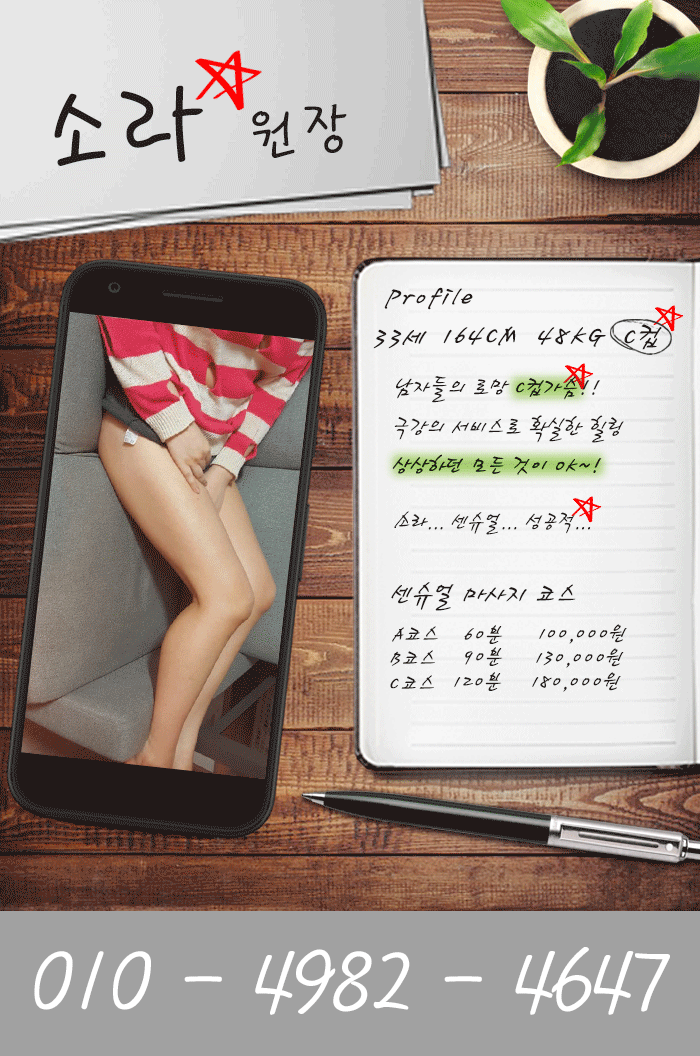 소라 원장
Profile
33세 164CM 48KG C컵
남자들의 로망 C컵가슴!!
극강의 서비스로 확실한 힐링
상상하던 모든 것이 OK~!
소라... 센슈얼... 성공적...
센슈얼 마사지 코스
A코스 60분 100,000원
B코스 90분 130,000원
C코스 120분 180,000원
010 - 4982 - 4647